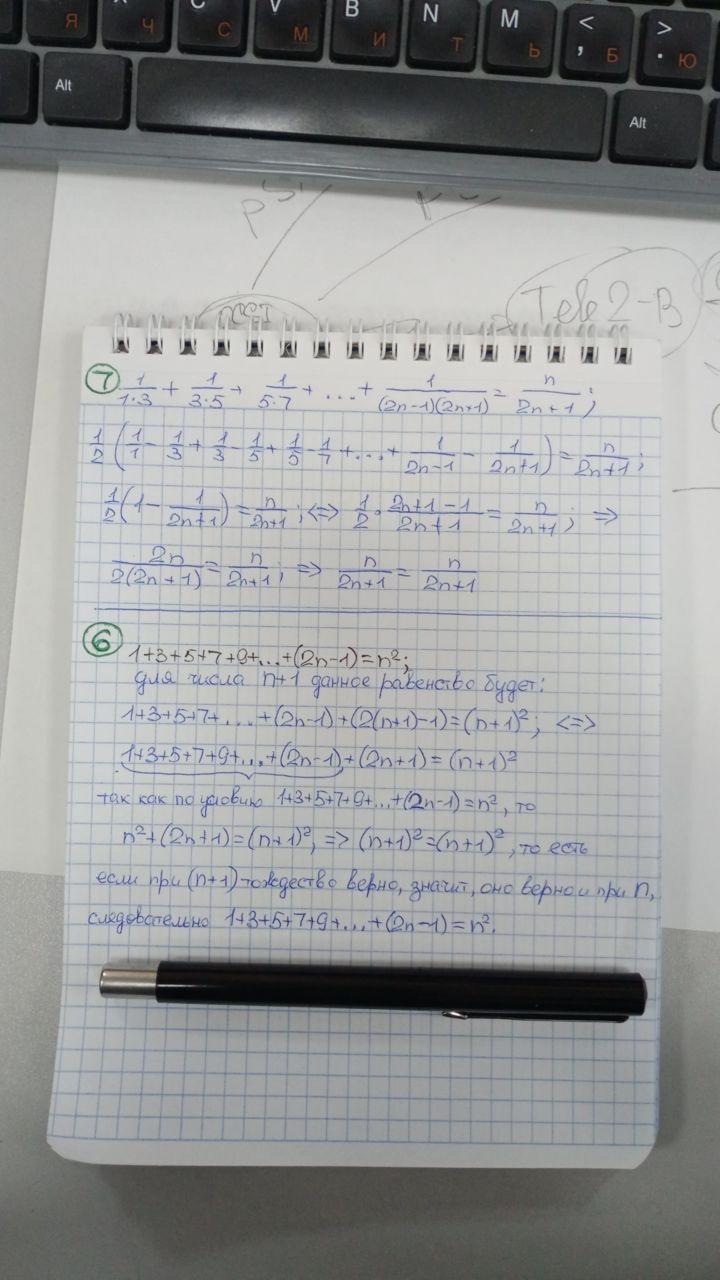 Я Ч С М И Т Ь < , Б > . Ю
C V B N M
Alt Alt
Tele2-В
⑦ 1/(1·3) + 1/(3·5) + 1/(5·7) + ... + 1/((2n-1)(2n+1)) = n/(2n+1);
1/2 (1/1 - 1/3 + 1/3 - 1/5 + 1/5 - 1/7 + ... + 1/(2n-1) - 1/(2n+1)) = n/(2n+1);
1/2 (1 - 1/(2n+1)) = n/(2n+1); <=> 1/2 · (2n+1-1)/(2n+1) = n/(2n+1); =>
2n/(2(2n+1)) = n/(2n+1); => n/(2n+1) = n/(2n+1)
⑥ 1+3+5+7+9+...+(2n-1)=n²;
для числа n+1 данное равенство будет:
1+3+5+7+...+(2n-1)+(2(n+1)-1)=(n+1)²; <=>
1+3+5+7+9+...+(2n-1)+(2n+1)=(n+1)²
так как по условию 1+3+5+7+9+...+(2n-1)=n², то
n²+(2n+1)=(n+1)², => (n+1)²=(n+1)², то есть
если при (n+1) тождество верно, значит, оно верно и при n,
следовательно 1+3+5+7+9+...+(2n-1)=n².